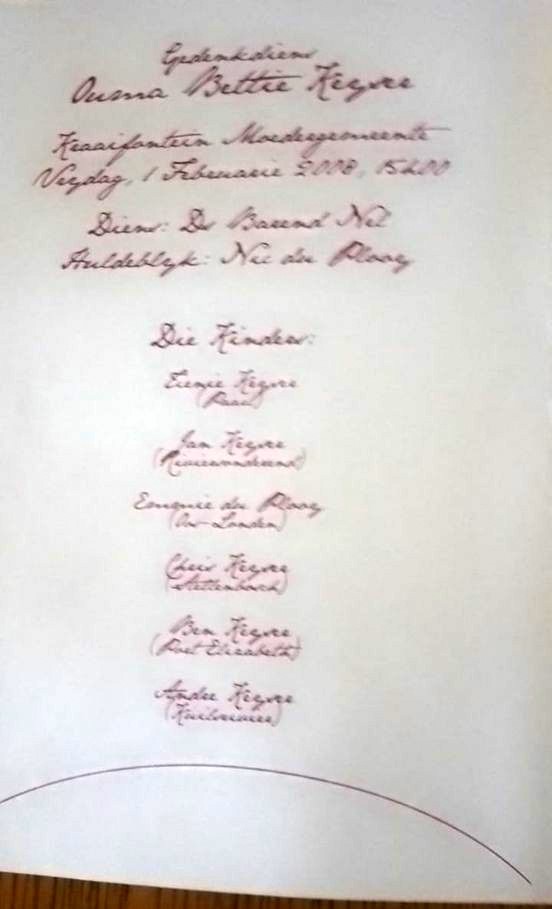 Gedenkdiens
Ouma Bettie Keyser
Kraaifontein Moedergemeente
Vrydag, 1 Februarie 2008, 15h00
Diens: Ds Barend Nel
Huldeblyk: Nic du Plooy
Die Kinders:
Tienie Keyser
(Paarl)
Jan Keyser
(Riviersonderend)
Emmie du Plooy
(Oos-Londen)
Chris Keyser
(Stellenbosch)
Ben Keyser
(Port Elizabeth)
Andre Keyser
(Kuilsrivier)